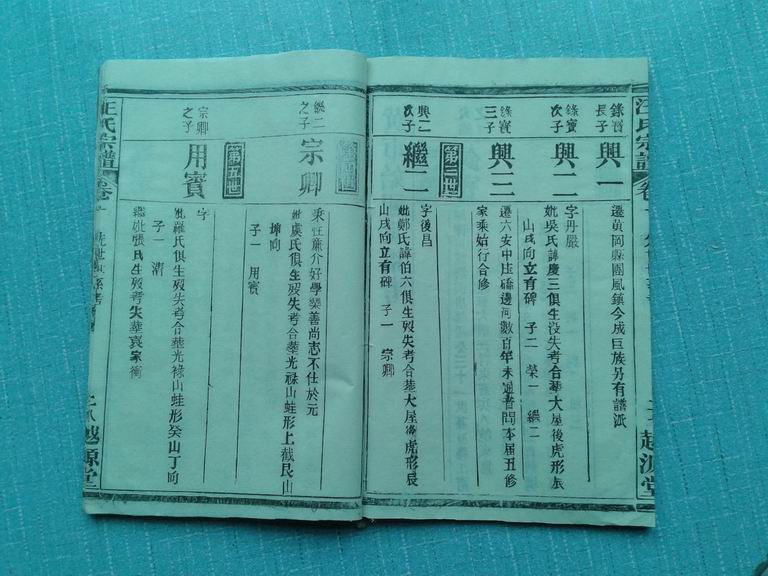 汪氏宗譜
錄寶
長子
興一
遷黃岡縣團風鎮今成巨族另有譜派
錄寶
次子
興二
字丹嚴
妣吳氏諱慶三俱生没失考合𦵏大屋後虎形辰
山戌向立有碑 子二 榮一 繼二
錄寶
三子
興三
遷六安中庄橋邊河數百年未通音問本届五修
家乘始行合修
第三世
興二
次子
繼二
字後昌
妣鄭氏諱伯六俱生歿失考合𦵏大屋後虎形辰
山戌向立有碑 子一 宗卿
越源堂
第四世
繼二
之子
宗卿
秉性廉介好學樂善尚志不仕於元
妣虞氏俱生歿失考合𦵏光祿山蛙形上截艮山
坤向
子一 用賓
第五世
宗卿
之子
用賓
字
妣羅氏俱生歿失考合𦵏光祿山蛙形癸山丁向
子一 清
繼妣張氏生歿考失𦵏袁家衝
汪氏宗譜
越源堂